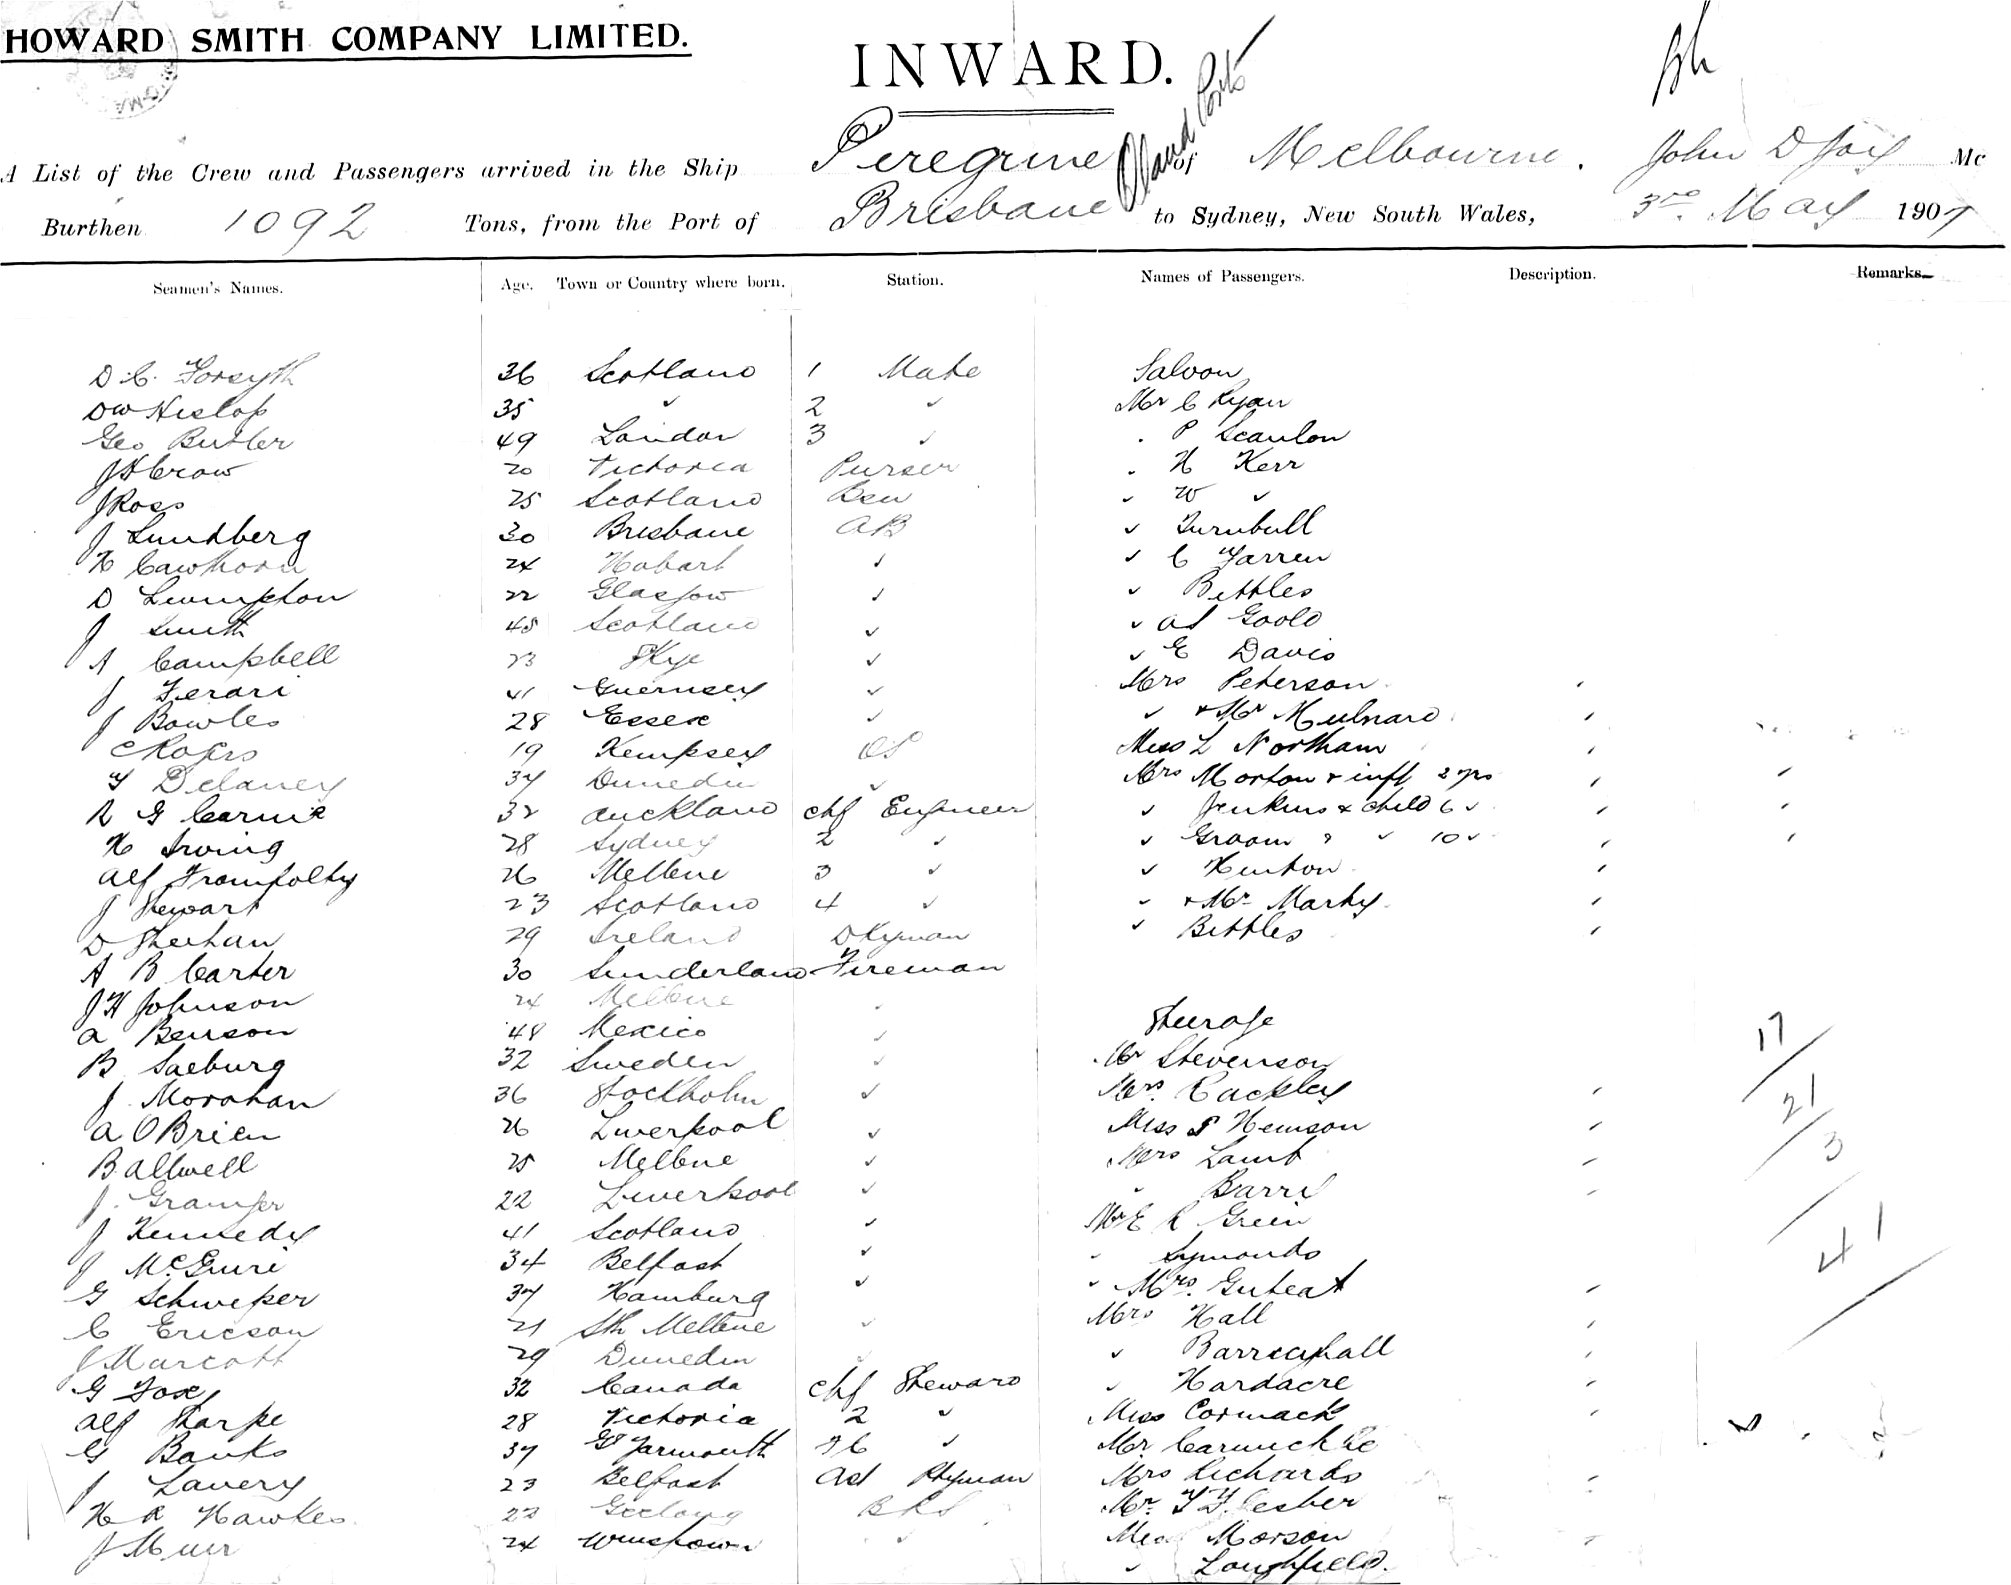 HOWARD SMITH COMPANY LIMITED.
INWARD.
A List of the Crew and Passengers arrived in the Ship Peregrine of Melbourne. John D Mc
and Ports
Burthen 1092 Tons, from the Port of Brisbane to Sydney, New South Wales, 3rd May 1907
Seamen's Names. Age. Town or Country where born. Station. Names of Passengers. Description. Remarks.
D. C. Forsyth 36 Scotland 1 Mate Saloon
DW Hislop 35 " 2 " Mr C Ryan
Geo Butler 49 London 3 " " P Scanlon
JH Crow 20 Victoria Purser " H Kerr
J Ross 25 Scotland Bsn " W "
J Lundberg 30 Brisbane AB " Turnbull
H Cawthorn 24 Hobart " " C Farren
D 22 Glasgow " " Bettles
J Smith 45 Scotland " " Goold
A Campbell 23 Skye " " E Davis
J Ferari 41 Guernsey " Mrs Peterson
J Bowles 28 Essex " " + Mr
C Rogers 19 Kempsey OS Miss L Northam
Delaney 37 Dunedin " Mrs Morton + inft 2 yrs
R G Carnie 32 Auckland Chf Engineer " Jenkins & child 6 "
H Irving 28 Sydney 2 " " Groom " " 10 "
Alf 26 Melbne 3 " " Hinton
J Stewart 23 Scotland 4 " " + Mr Marky
D Sheehan 29 Ireland Dkyman " Bettles
A B Carter 30 Sunderland Fireman
JH Johnson 24 Melbne " Steerage
A Benson 48 Mexico " 17
B Saeburg 32 Sweden " Mr Stevenson
J. Morohan 36 Stockholm " Mrs. Rackley 21
A O'Brien 26 Liverpool " Miss Hewson 3
B Allwell 25 Melbne " Mrs Lamb
J. Granger 22 Liverpool " " Barry
J Kennedy 41 Scotland " Mr E R Green 41
J McGuire 34 Belfast " " Symonds
G 37 Hamburg " " Mrs.
C Ericson 21 Sth Melbne " Mrs Hall
J Marcott 29 Dunedin " "
G Fox 32 Canada Chf Steward " Hardacre
Alf Sharpe 28 Victoria 2 " Miss Cormack
G Banks 37 Gt Yarmouth " Mr.
J Lavery 23 Belfast Mrs Richards
H R Hawkes 22 Geelong Mr.
J Muir 24 " Morson
"